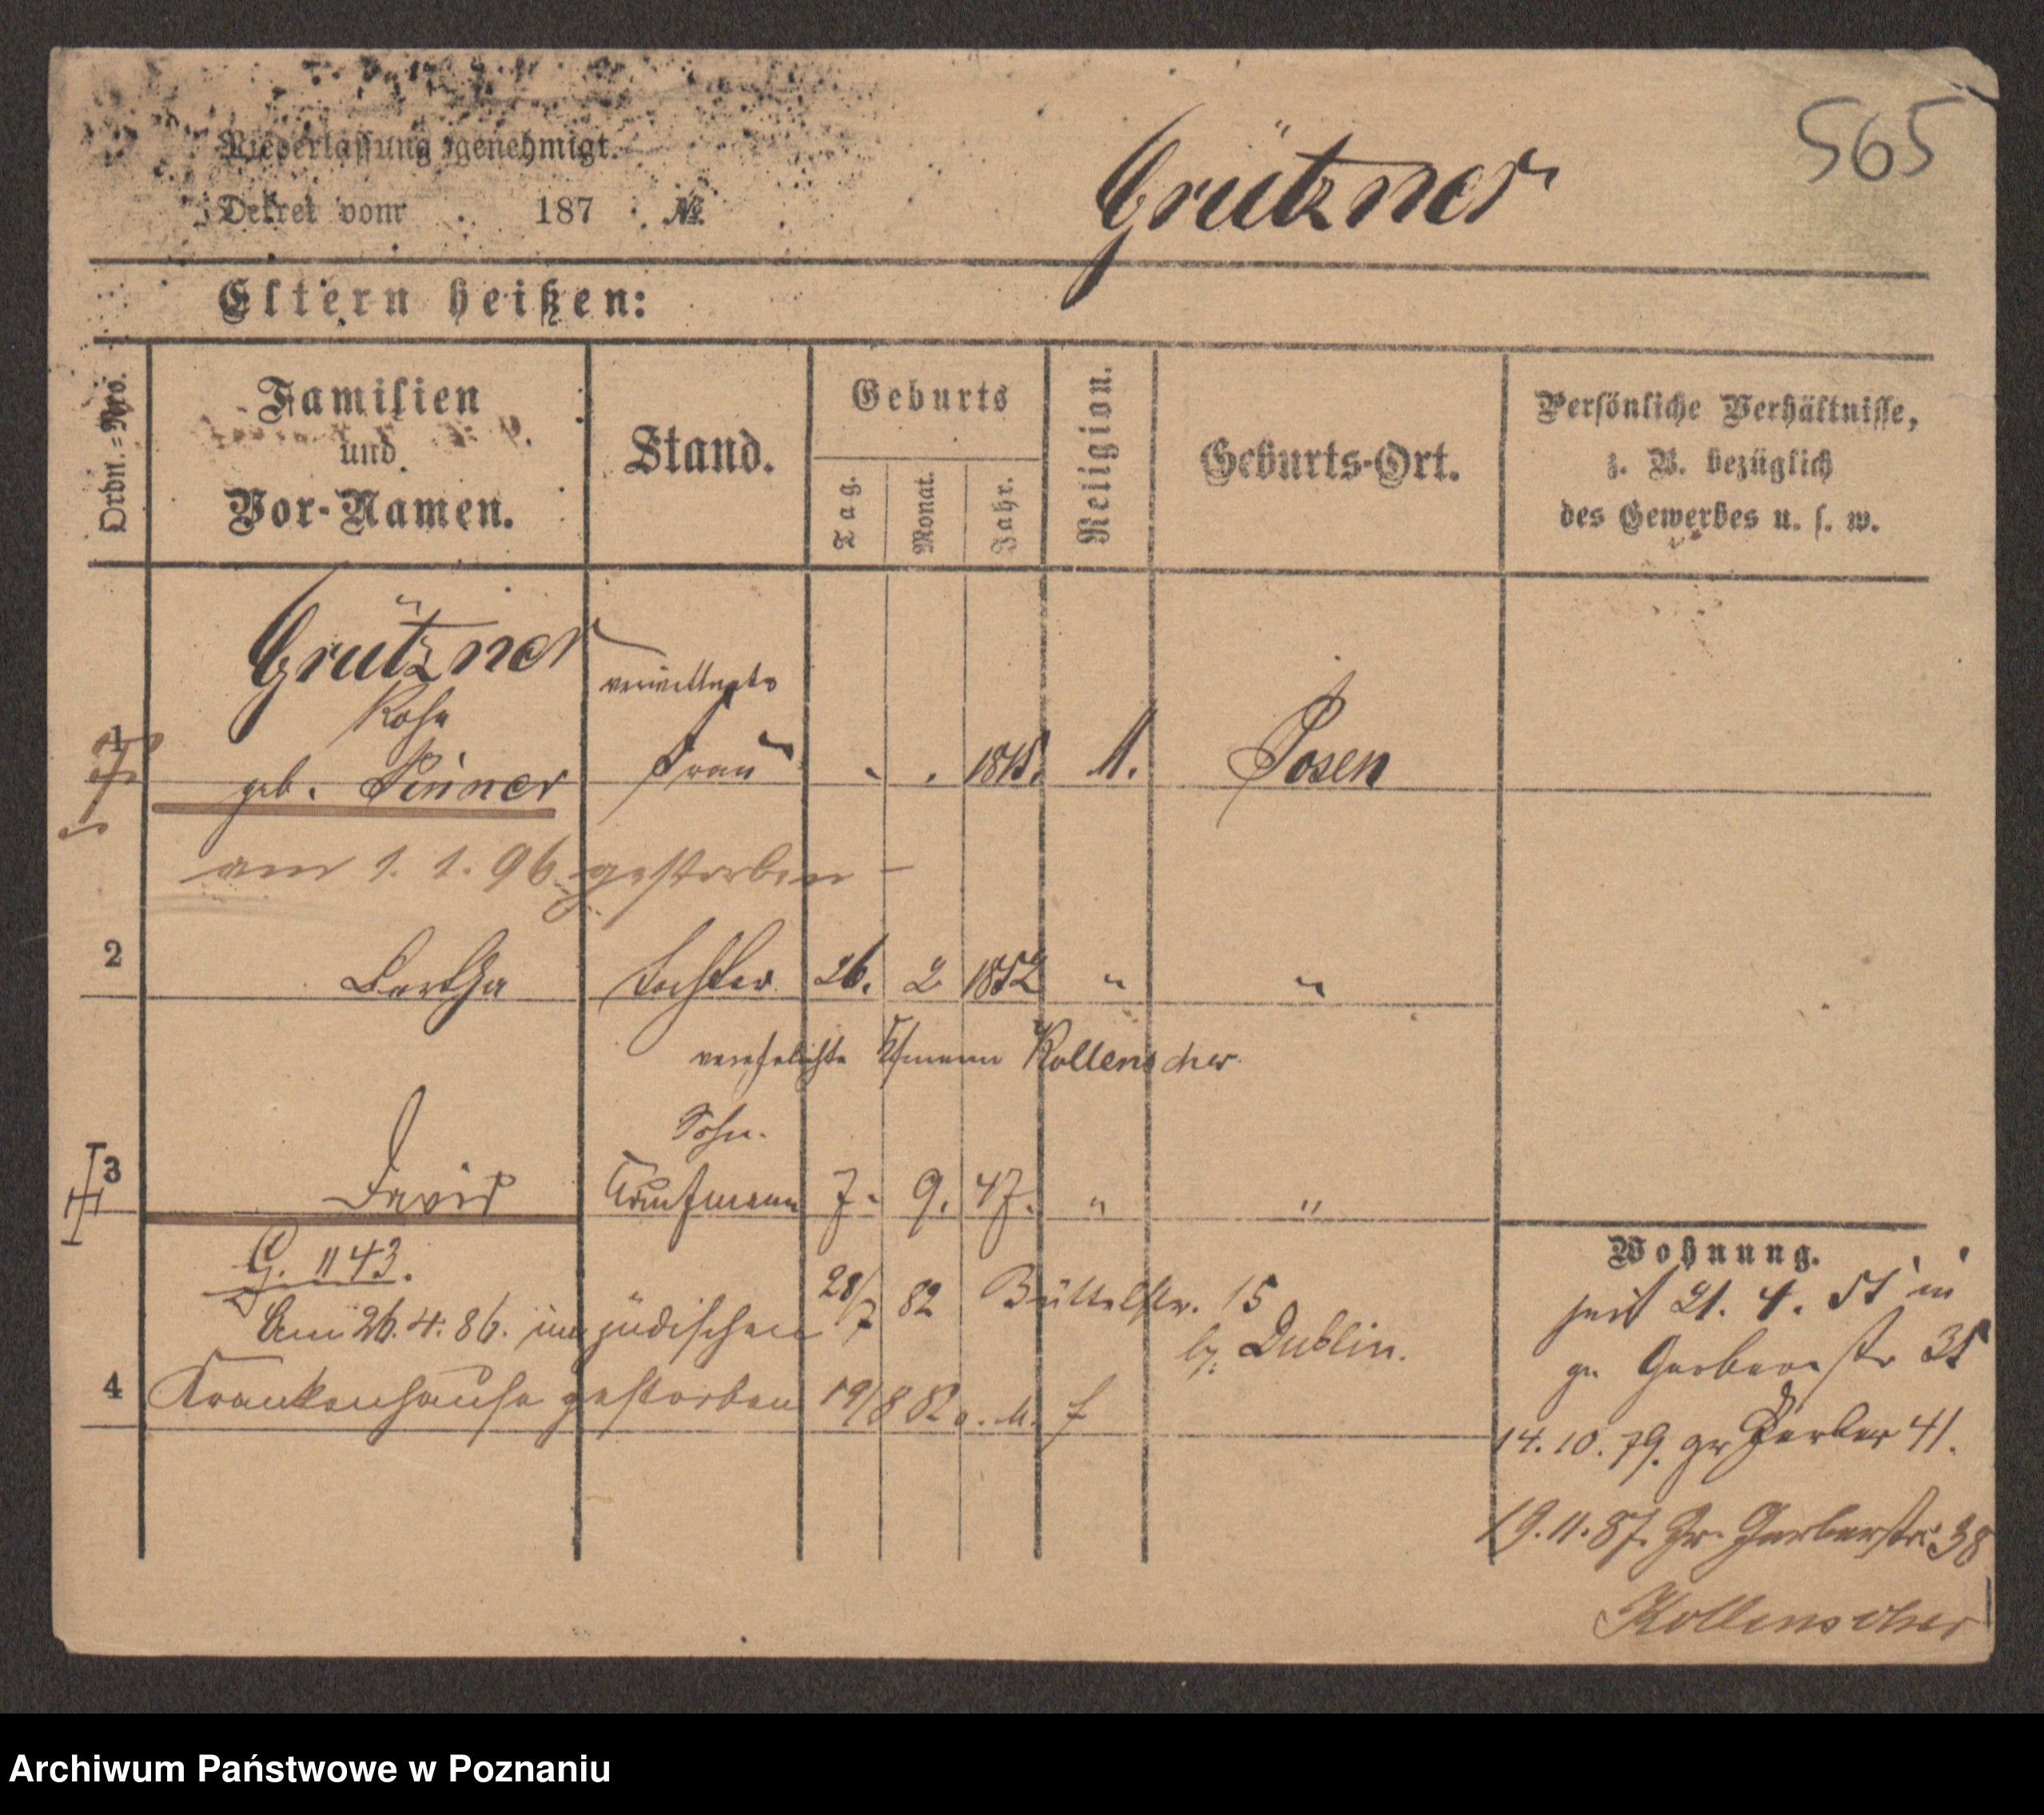 565
Niederlassung genehmigt.
Dekret vom 187 №
Grützner
Eltern heißen:
Ordn.-Nro.
Familien und Vor-Namen.
Stand.
Geburts
Tag.
Monat.
Jahr.
Religion.
Geburts-Ort.
Persönliche Verhältnisse,
z. B. bezüglich
des Gewerbes u. s. w.
Grützner
verwittwete
Rosa
1 geb. Pinner Frau 1815. M. Posen
am 1. 1. 96 gestorben –
2 Bertha Tochter 26. 2 1852 " "
verehelichte Kfmann Kollenscher
Sohn.
3 David Kaufmann 7. 9. 47. " "
G. 1143.
28/7 82 Büttelstr. 15
Am 26. 4. 86. im jüdischen
b/. Dublin.
4 Krankenhause gestorben 19/8 82
Wohnung.
seit 21. 4. in
gr Gerberstr
14. 10. 79. gr Gerber 41.
19. 11. 87. Gr. Gerberstr. 38
Kollenscher
Archiwum Państwowe w Poznaniu